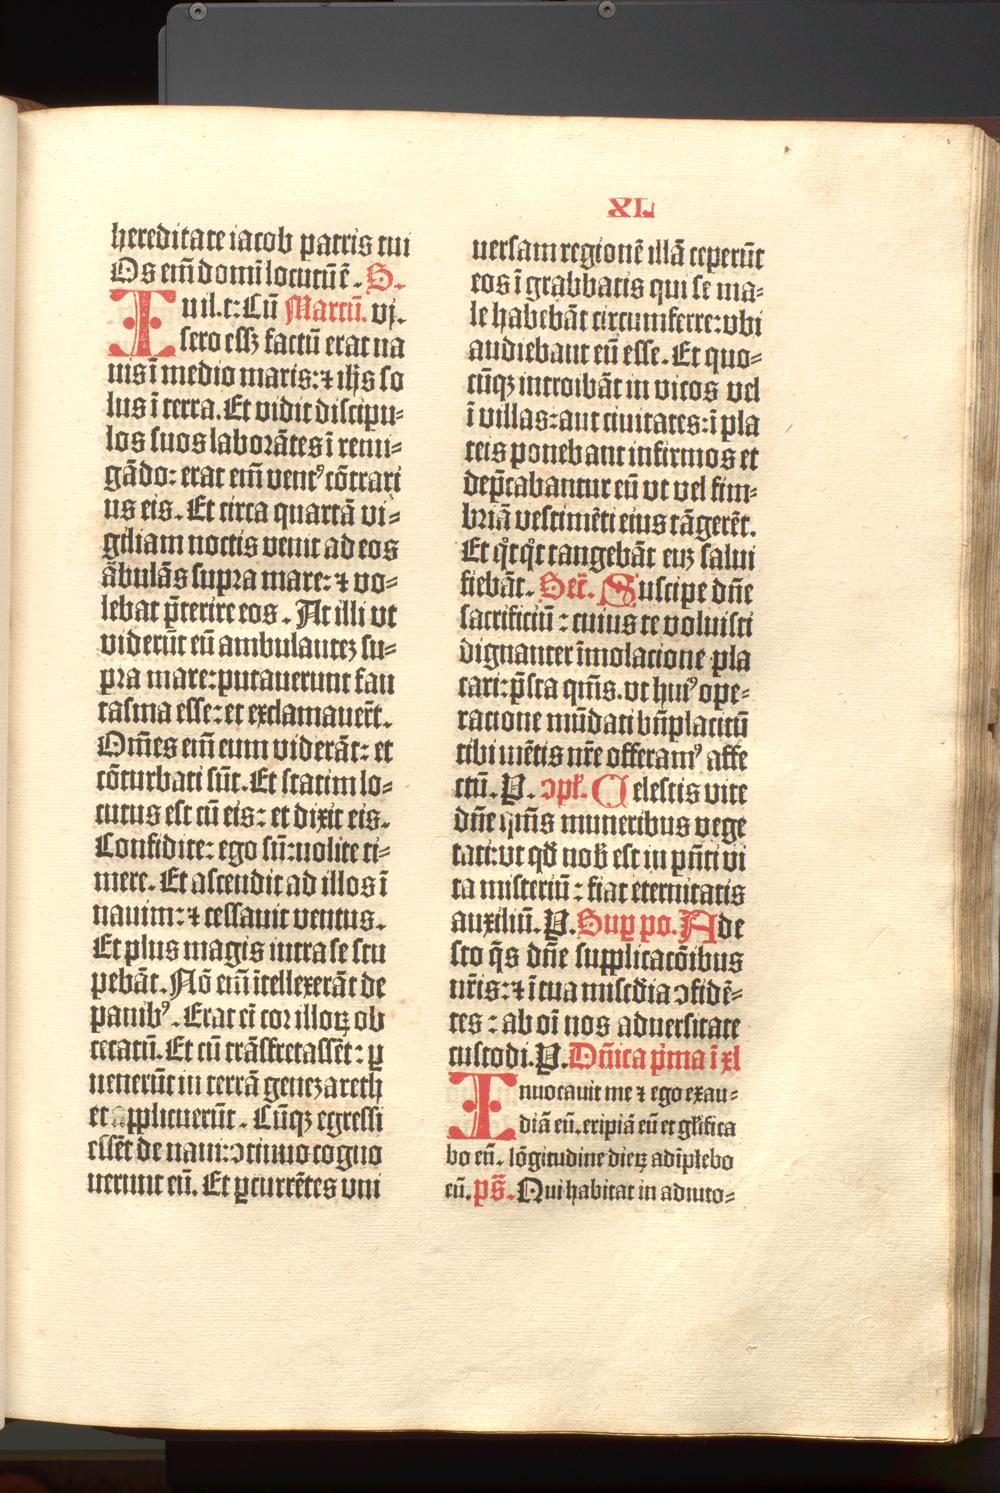 XL
hereditate iacob patris tui
Os eni̅ domi̅ locutu̅ e̅. S.
In il.t: Cu̅ Marcu̅. vj.
sero essꝫ factu̅ erat na
uis i̅ medio maris: ⁊ ih̅s so
lus i̅ terra. Et vidit discipu⸗
los suos labora̅tes i̅ remi⸗
ga̅do: erat eni̅ ventꝰ co̅trari
us eis. Et circa quarta̅ vi⸗
giliam noctis venit ad eos
a̅bula̅s supra mare: ⁊ vo⸗
lebat p̅terire eos. At illi vt
videru̅t eu̅ ambulanteꝫ su⸗
pra mare: putauerunt fan
tasma esse: et exclamauer̅t.
Om̅es eni̅ eum videra̅t: et
co̅turbati su̅t. Et statim lo⸗
cutus est cu̅ eis: et dixit eis.
Confidite: ego su̅: nolite ti⸗
mere. Et ascendit ad illos i̅
nauim: ⁊ cessauit ventus.
Et plus magis intra se stu
peba̅t. No̅ eni̅ i̅tellexera̅t de
panibꝰ. Erat ei̅ cor illoꝝ ob
cecatu̅. Et cu̅ tra̅sfretasse̅t: ꝑ
ueneru̅t in terra̅ genezareth
et applicueru̅t. Cu̅qꝫ egressi
esse̅t de naui: ↄtinuo cogno
uerunt eu̅. Et ꝑcurre̅tes vni
uersam regione̅ illa̅ ceperu̅t
eos i̅ grabbatis qui se ma⸗
le habeba̅t circumferre: vbi
audiebant eu̅ esse. Et quo⸗
cu̅qꝫ introiba̅t in vicos vel
i̅ villas: aut ciuitates: i̅ pla
teis ponebant infirmos et
dep̅cabantur eu̅ vt vel fim⸗
bria̅ vestime̅ti eius ta̅gere̅t.
Et qͦtqͦt tangeba̅t euꝫ salui
fieba̅t. Secr̅. Suscipe dn̅e
sacrificiu̅: cuius te voluisti
dignanter i̅molacione pla
cari: p̅sta qm̅s. vt huiꝰ ope⸗
racione mu̅dati bn̅placitu̅
tibi me̅tis nr̅e offeramꝰ affe
ctu̅. P. ↄpl̅. Celestis vite
dn̅e qm̅s muneribus vege
tati: vt qd̅ nob̅ est in pn̅ti vi
ta misteriu̅: fiat eternitatis
auxiliu̅. P. Sup po. Ade
sto q̅s dn̅e supplicaco̅ibus
nr̅is: ⁊ i̅ tua miscd̅ia ↄfide̅⸗
tes: ab oi̅ nos aduersitate
custodi. P. Dn̅ica p̅ma i̅ xl
Inuocauit me ⁊ ego exau⸗
dia̅ eu̅. eripia̅ eu̅ et gl̅ifica
bo eu̅. lo̅gitudine dieꝝ adi̅plebo
eu̅. ps̅. Qui habitat in adiuto⸗